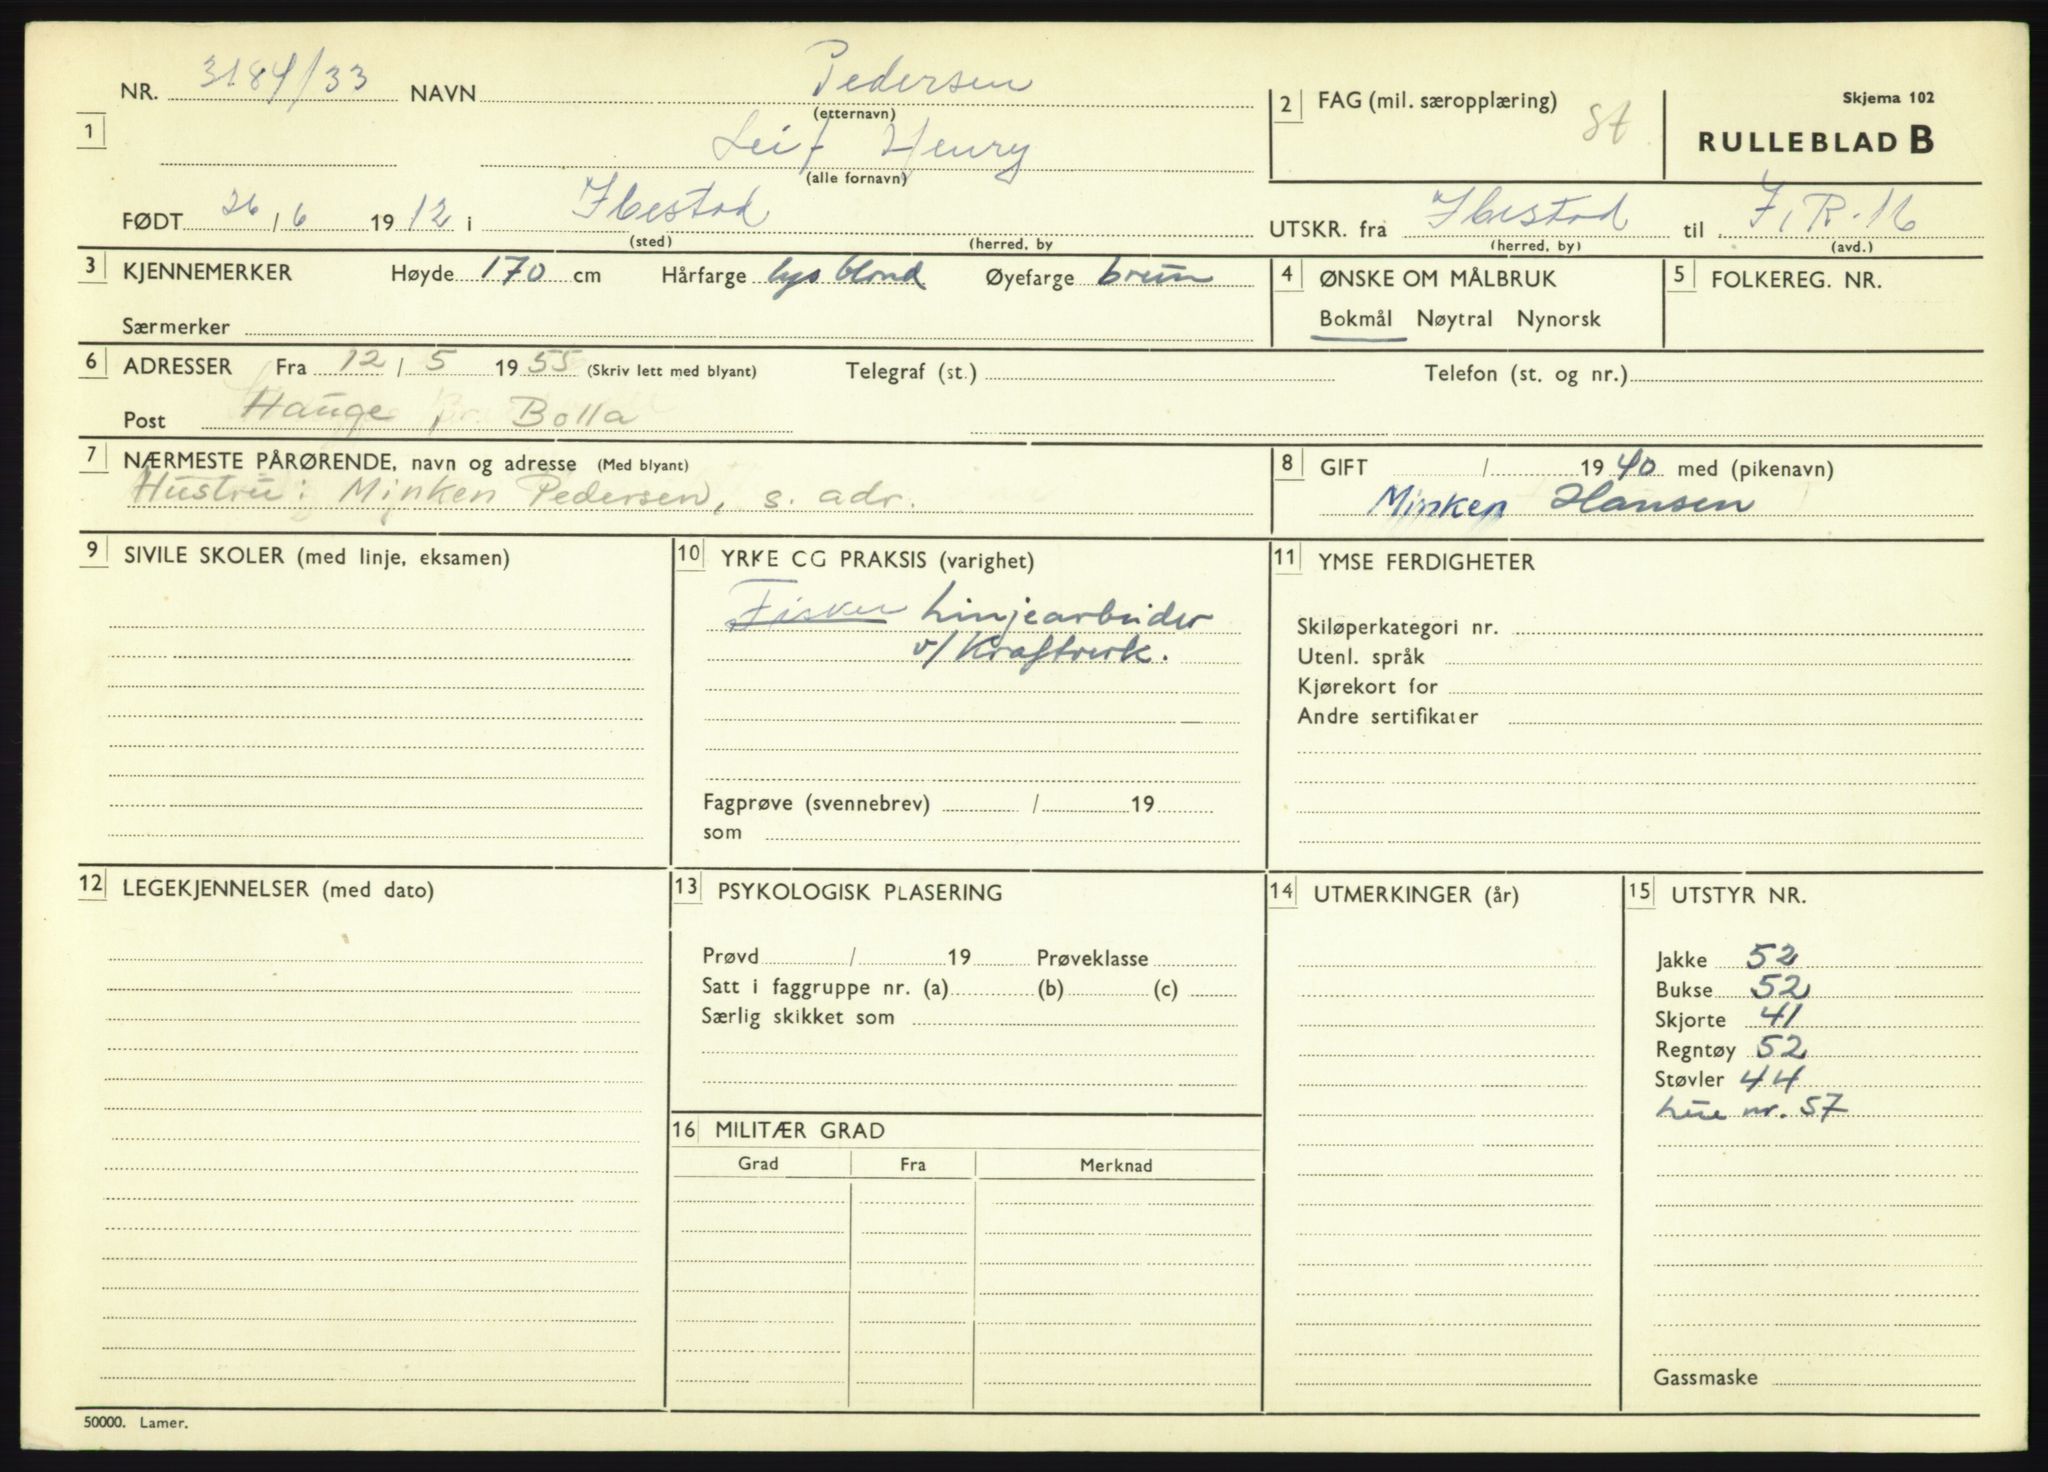 NR. 3184/33 NAVN Pedersen
(etternavn)
1
Leif Henry
(alle fornavn)
2 FAG (mil. særopplæring) St
Skjema 102
RULLEBLAD B
FØDT 26/6 1912 i Ibestad
(sted) (herred, by
UTSKR. fra Ibestad til I.R. 16
(herred, by) (avd.)
3 KJENNEMERKER Høyde 170 cm Hårfarge lys blond Øyefarge brun
Særmerker
4 ØNSKE OM MÅLBRUK
Bokmål Nøytral Nynorsk
5 FOLKEREG. NR.
6 ADRESSER Fra 12/5 1955 (Skriv lett med blyant) Telegraf (st.) Telefon (st. og nr.)
Post Hauge pr. Bolla
7 NÆRMESTE PÅRØRENDE, navn og adresse (Med blyant)
Hustru: Minken Pedersen, s. adr.
8 GIFT / 1940 med (pikenavn)
Minken Hansen
9 SIVILE SKOLER (med linje, eksamen)
10 YRKE CG PRAKSIS (varighet)
Fisker Linjearbeider
v/Kraftverk.
Fagprøve (svennebrev) / 19
som
11 YMSE FERDIGHETER
Skiløperkategori nr.
Utenl. språk
Kjørekort for
Andre sertifikater
12 LEGEKJENNELSER (med dato)
13 PSYKOLOGISK PLASERING
Prøvd / 19 Prøveklasse
Satt i faggruppe nr. (a) (b) (c)
Særlig skikket som
16 MILITÆR GRAD
Grad Fra Merknad
14 UTMERKINGER (år)
15 UTSTYR NR.
Jakke 52
Bukse 52
Skjorte 41
Regntøy 52
Støvler 44
Lue nr. 57
Gassmaske
50000. Lamer.